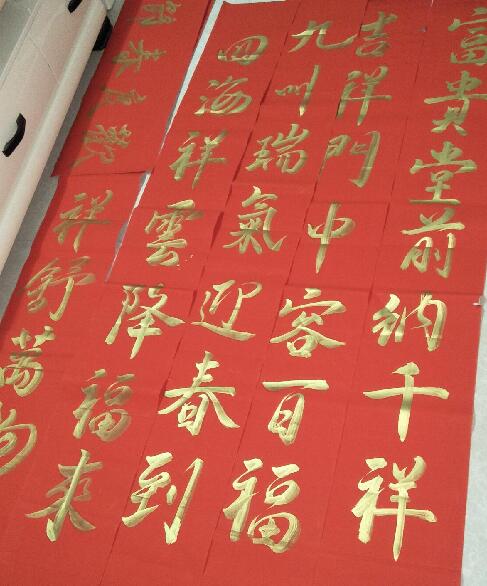 富貴堂前納千祥
吉祥門中容百福
九州瑞氣迎春到
四海祥雲降福來
祥舒